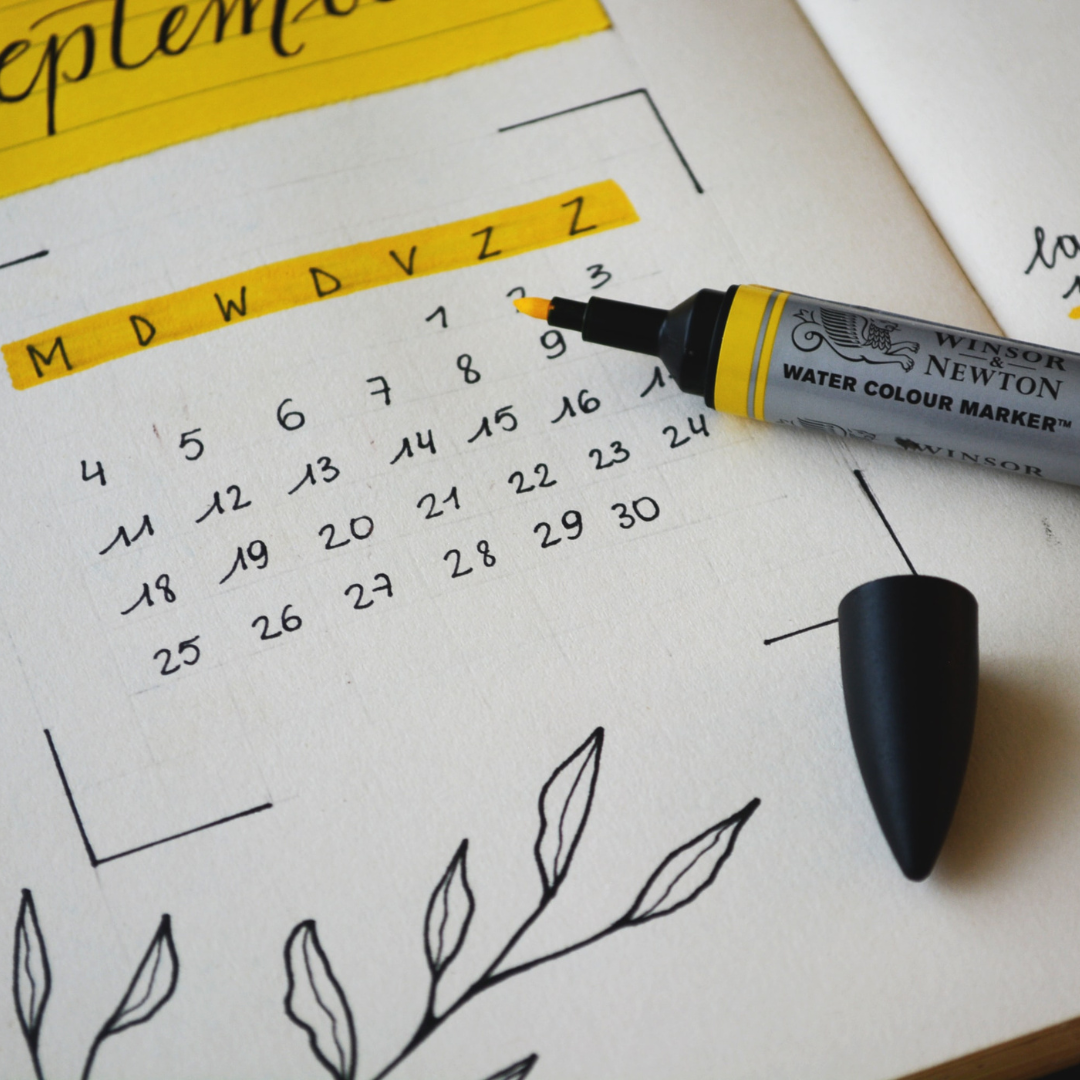 eptem
M D W D V Z Z
1 2 3
4 5 6 7 8 9
11 12 13 14 15 16
18 19 20 21 22 23 24
25 26 27 28 29 30
WINSOR
&
NEWTON
WATER COLOUR MARKER™
WINSOR